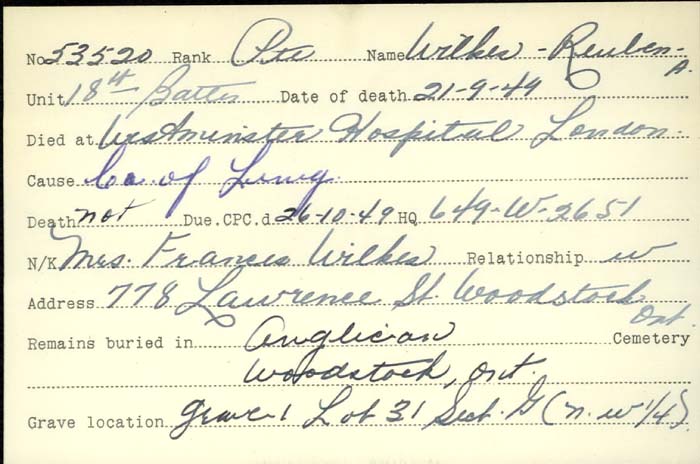 No 53520 Rank Pte Name Wilkes - Reuben - A.
Unit 18th Battn Date of death 21-9-49
Died at Westminster Hospital London.
Cause Ca. of Lung.
Death not Due. CPC.d 26-10-49 HQ 649-W-2651
N/K Mrs. Frances Wilkes Relationship w
Address 778 Lawrence St. Woodstock Ont
Remains buried in Anglican Cemetery
Woodstock, Ont.
Grave location grave 1 Lot 31 Sect. G (n. w 1/4).